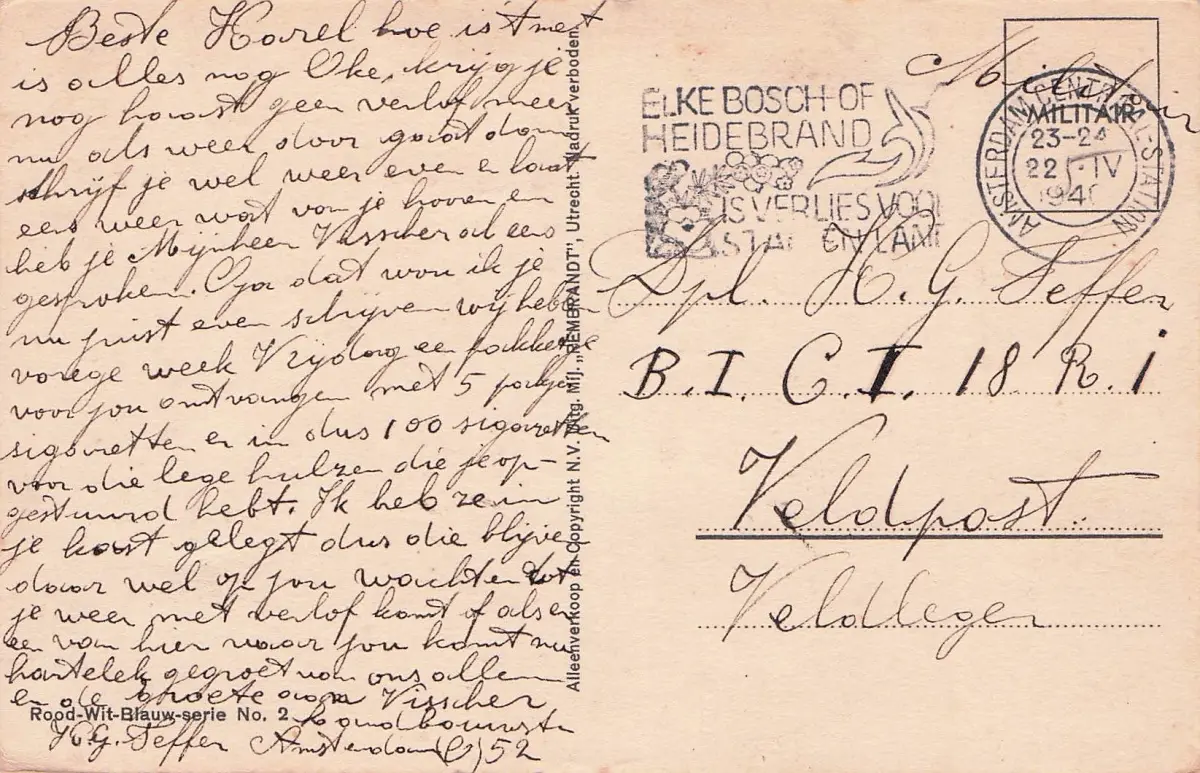 Beste Karel hoe is't met
is alles nog Oke, krijg je
nog haast geen verlof meer
nu als weer door gaat dan
schrijf je wel weer even en laat
eens weer wat van je horen en
heb je Mijnheer Visscher al eens
gesproken. Oja dat wou ik je
nu juist even schrijven wij hebben
vorege week Vrijdag een pakketje
voor jou ontvangen met 5 pakjes
sigaretten er in dus 100 sigaretten
voor die lege hulzen die je op-
gestuurd hebt. Ik heb ze in
je kast gelegt dus die blijven
daar wel op jou wachten tot
je weer met verlof komt of als er
een van hier naar jou komt nu
hartelek gegroet van ons allen
en de groete aan Visscher
Rood-Wit-Blauw-serie No. 2
H.G. Seffer Amsterdam 52
Alleenverkoop en Copyright N.V. Uitg. Mij. „REMBRANDT", Utrecht. Nadruk verboden.
ELKE BOSCH- OF
HEIDEBRAND
IS VERLIES VOOR
STAD EN LAND
Militair
AMSTERDAM CENTRAAL-STATION
MILITAIR
23-24
22 IV
1940
Dpl. H.G. Seffer
B.I. C.I. 18 R.I
Veldpost.
Veldleger